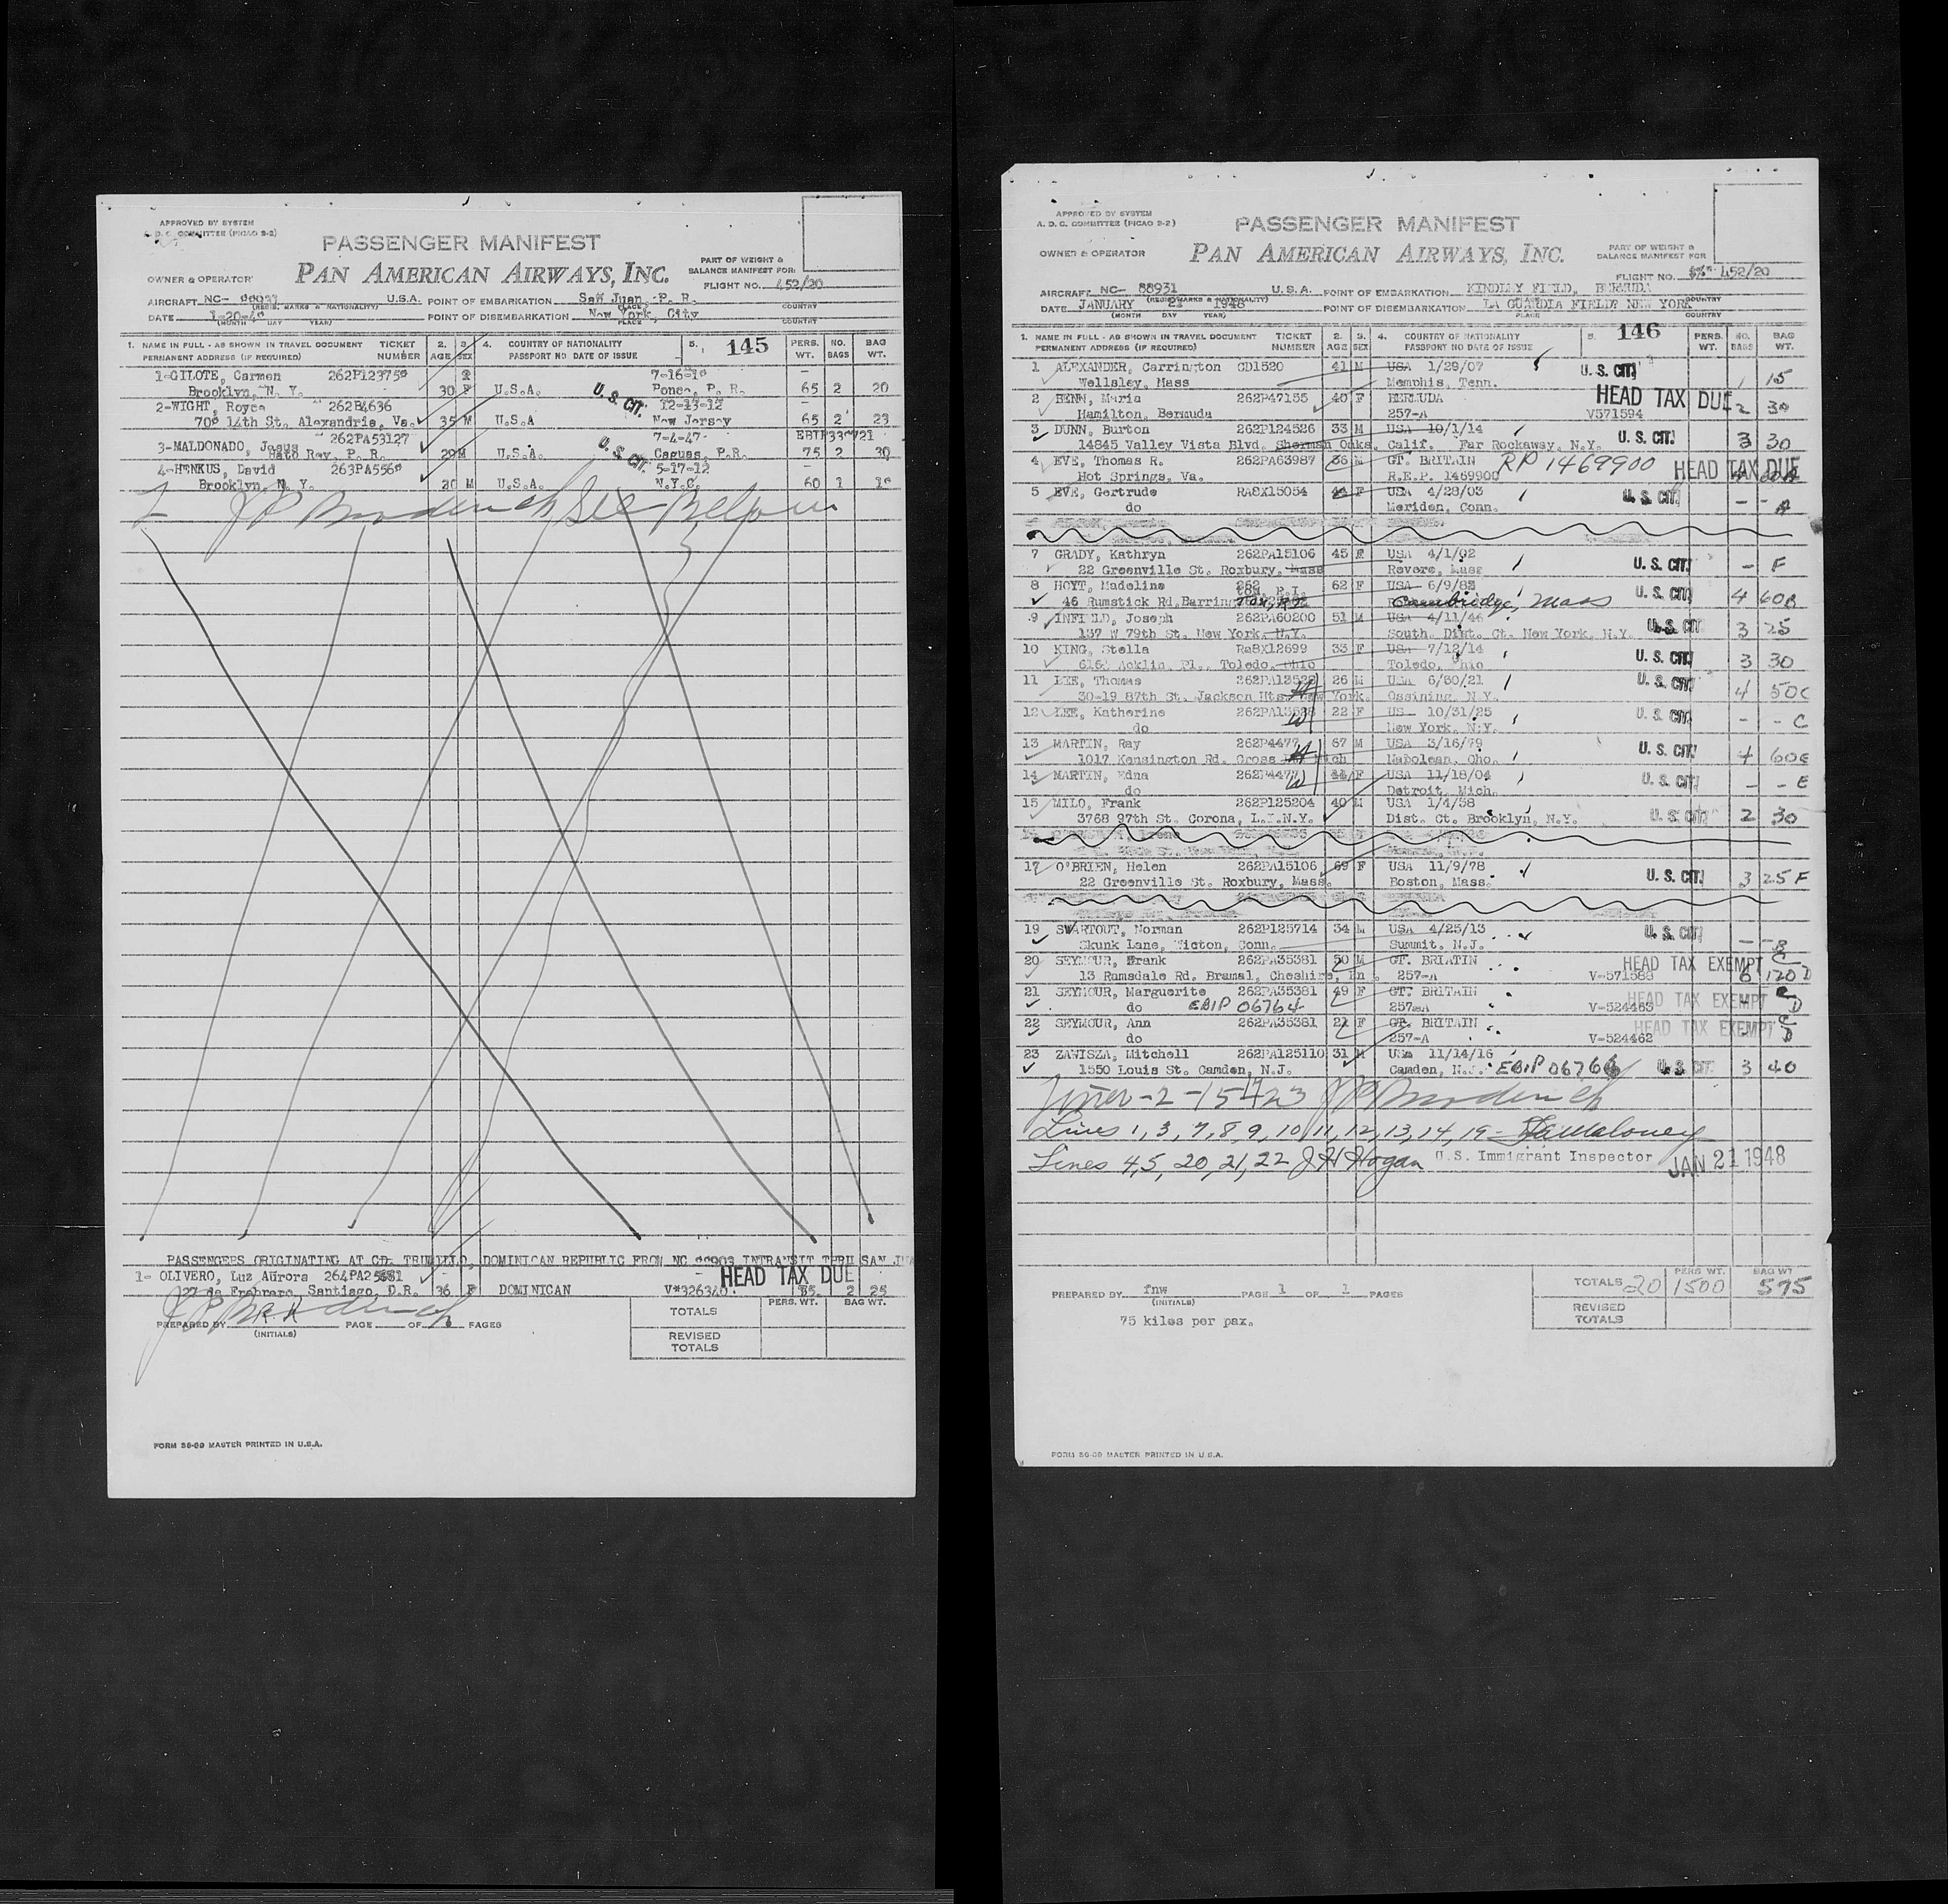 APPROVED BY SYSTEM
A. D. C. COMMITTEE (PICAO S-2)
PASSENGER MANIFEST
OWNER & OPERATOR
PAN AMERICAN AIRWAYS, INC.
PART OF WEIGHT &
BALANCE MANIFEST FOR:
FLIGHT NO. 452/20
AIRCRAFT NC- U.S.A. POINT OF EMBARKATION San Juan, P. R.
(REGIS. MARKS & NATIONALITY) PLACE COUNTRY
DATE 1-20-48 POINT OF DISEMBARKATION New York, City
(MONTH DAY YEAR) PLACE COUNTRY
1. NAME IN FULL - AS SHOWN IN TRAVEL DOCUMENT TICKET 2. 3. 4. COUNTRY OF NATIONALITY 5. 145 PERS. NO. BAG
PERMANENT ADDRESS (IF REQUIRED) NUMBER AGE SEX PASSPORT NO DATE OF ISSUE WT. BAGS WT.
1-GILOTE, Carmen
Brooklyn, N. Y. 30 F U.S.A. U. S. CIT. Ponce, P. R. 65 2 20
2-WIGHT, Royce 262B4636 12-13-12
14th St. Alexandria, Va. 35 M U.S.A New Jersey 65 2 23
3-MALDONADO, Jesus 262PA53127 7-4-47
Hato Rey, P. R. 29 M U.S.A. U. S. CIT. Caguas, P.R. 75 2 30
4-HENKUS, David 5-17-12
Brooklyn, N. Y. M U.S.A. N.Y.C. 60 1
See Below
PASSENGERS ORIGINATING AT CD. TRUJILLO, DOMINICAN REPUBLIC FROM NC INTRANSIT THRU SAN
1- OLIVERO, Luz Aurora HEAD TAX DUE
27 de Frebrero, Santiago, D.R. 36 F DOMINICAN V#326340. 2 25
PREPARED BY PAGE OF PAGES
(INITIALS)
TOTALS PERS. WT. BAG WT.
REVISED
TOTALS
FORM 36-39 MASTER PRINTED IN U.S.A.
APPROVED BY SYSTEM
A. D. C. COMMITTEE (PICAO S-2)
PASSENGER MANIFEST
OWNER & OPERATOR
PAN AMERICAN AIRWAYS, INC.
PART OF WEIGHT &
BALANCE MANIFEST FOR
FLIGHT NO. 452/20
AIRCRAFT NC- 88931 U.S.A. POINT OF EMBARKATION KINDLEY FIELD, BERMUDA
(REGIS MARKS & NATIONALITY) COUNTRY
DATE JANUARY 21 1948 POINT OF DISEMBARKATION LA GUARDIA FIELD NEW YORK
(MONTH DAY YEAR) PLACE COUNTRY
1. NAME IN FULL - AS SHOWN IN TRAVEL DOCUMENT TICKET 2. 3. 4. COUNTRY OF NATIONALITY 5. 146 PERS. NO. BAG
PERMANENT ADDRESS (IF REQUIRED) NUMBER AGE SEX PASSPORT NO DATE OF ISSUE WT. BAGS WT.
1 ALEXANDER, Carrington CD1520 41 M USA 1/29/07 U. S. CIT.
Wellsley, Mass Memphis, Tenn. 1 15
2 BENN, Maria 262P47155 40 F BERMUDA HEAD TAX DUE
Hamilton, Bermuda 257-A V571594 2 30
3 DUNN, Burton 262P124526 33 M USA 10/1/14 U. S. CIT.
14845 Valley Vista Blvd. Sherman Oaks, Calif. Far Rockaway, N.Y. 3 30
4 EVE, Thomas R. 262PA63987 36 M GT. BRITAIN RP 1469900 HEAD TAX DUE
Hot Springs, Va. R.E.P. 1469900
5 EVE, Gertrude RASX15054 44 F USA 4/28/03 U. S. CIT.
do Meriden, Conn. - - A
7 GRADY, Kathryn 262PA15106 45 F USA 4/1/02 U. S. CIT.
22 Greenville St. Roxbury, Mass Revere, Mass - F
8 HOYT, Madeline 262 62 F USA 6/9/85 U. S. CIT.
46 Rumstick Rd, Barrington, R.I. Cambridge, Mass 4 60B
9 INFIELD, Joseph 262PA60200 51 M USA 4/11/46 U. S. CIT.
137 W 79th St. New York, N.Y. South. Dist. Ct. New York, N.Y. 3 25
10 KING, Stella RaSX12699 33 F USA 7/12/14 U. S. CIT.
Acklin Pl., Toledo, Ohio Toledo, Ohio 3 30
11 LEE, Thomas 26 M USA 6/30/21 U. S. CIT.
30-19 87th St. Jackson Hts. New York. Ossining, N.Y. 4 50C
12 LEE, Katherine 22 F US 10/31/25 U. S. CIT.
do New York, N.Y. - - C
13 MARTIN, Ray 262P4477 67 M USA 3/16/79 U. S. CIT.
1017 Kensington Rd. Gross Mich Napolean, Oho. 4 60E
14 MARTIN, Edna 262P4477 44 F USA 11/18/04 U. S. CIT.
do Detroit, Mich. - - E
15 MILO, Frank 262P125204 40 M USA 1/4/38
3768 97th St. Corona, L.I.N.Y. Dist. Ct. Brooklyn, N.Y. U. S. CIT. 2 30
17 O'BRIEN, Helen 262PA15106 69 F USA 11/9/78 U. S. CIT.
22 Greenville St. Roxbury, Mass. Boston, Mass. 3 25 F
19 SWARTOUT, Norman 262P125714 34 M USA 4/25/13 U. S. CIT.
Skunk Lane, Wicton, Conn. Summit, N.J. - - B
20 SEYMOUR, Frank 262PA35381 50 M GT. BRIATIN HEAD TAX EXEMPT
13 Ramsdale Rd. Bramal, Cheshire, En. 257-A V-571588 6 120 D
21 SEYMOUR, Marguerite 262PA35381 49 F GT. BRITAIN HEAD TAX EXEMPT
do EBIP 06764 257-A V-524463 D
22 SEYMOUR, Ann 262PA35381 21 F GT. BRITAIN HEAD TAX EXEMPT
do 257-A V-524462 D
23 ZAWISZA, Mitchell 262PA125110 31 M USa 11/14/16 U. S. CIT.
1550 Louis St. Camden, N.J. Camden, N.J. EBIP 06766 3 40
Lines 1, 3, 7, 8, 9, 10, 11, 12, 13, 14, 19 - Maloney
Lines 4, 5, 20, 21, 22 J H Hogan U.S. Immigrant Inspector JAN 21 1948
PREPARED BY fnw PAGE 1 OF 1 PAGES
(INITIALS)
TOTALS 20 PERS WT. 1500 BAG WT 575
REVISED
TOTALS
75 kilos per pax.
FORM 36-39 MASTER PRINTED IN U.S.A.